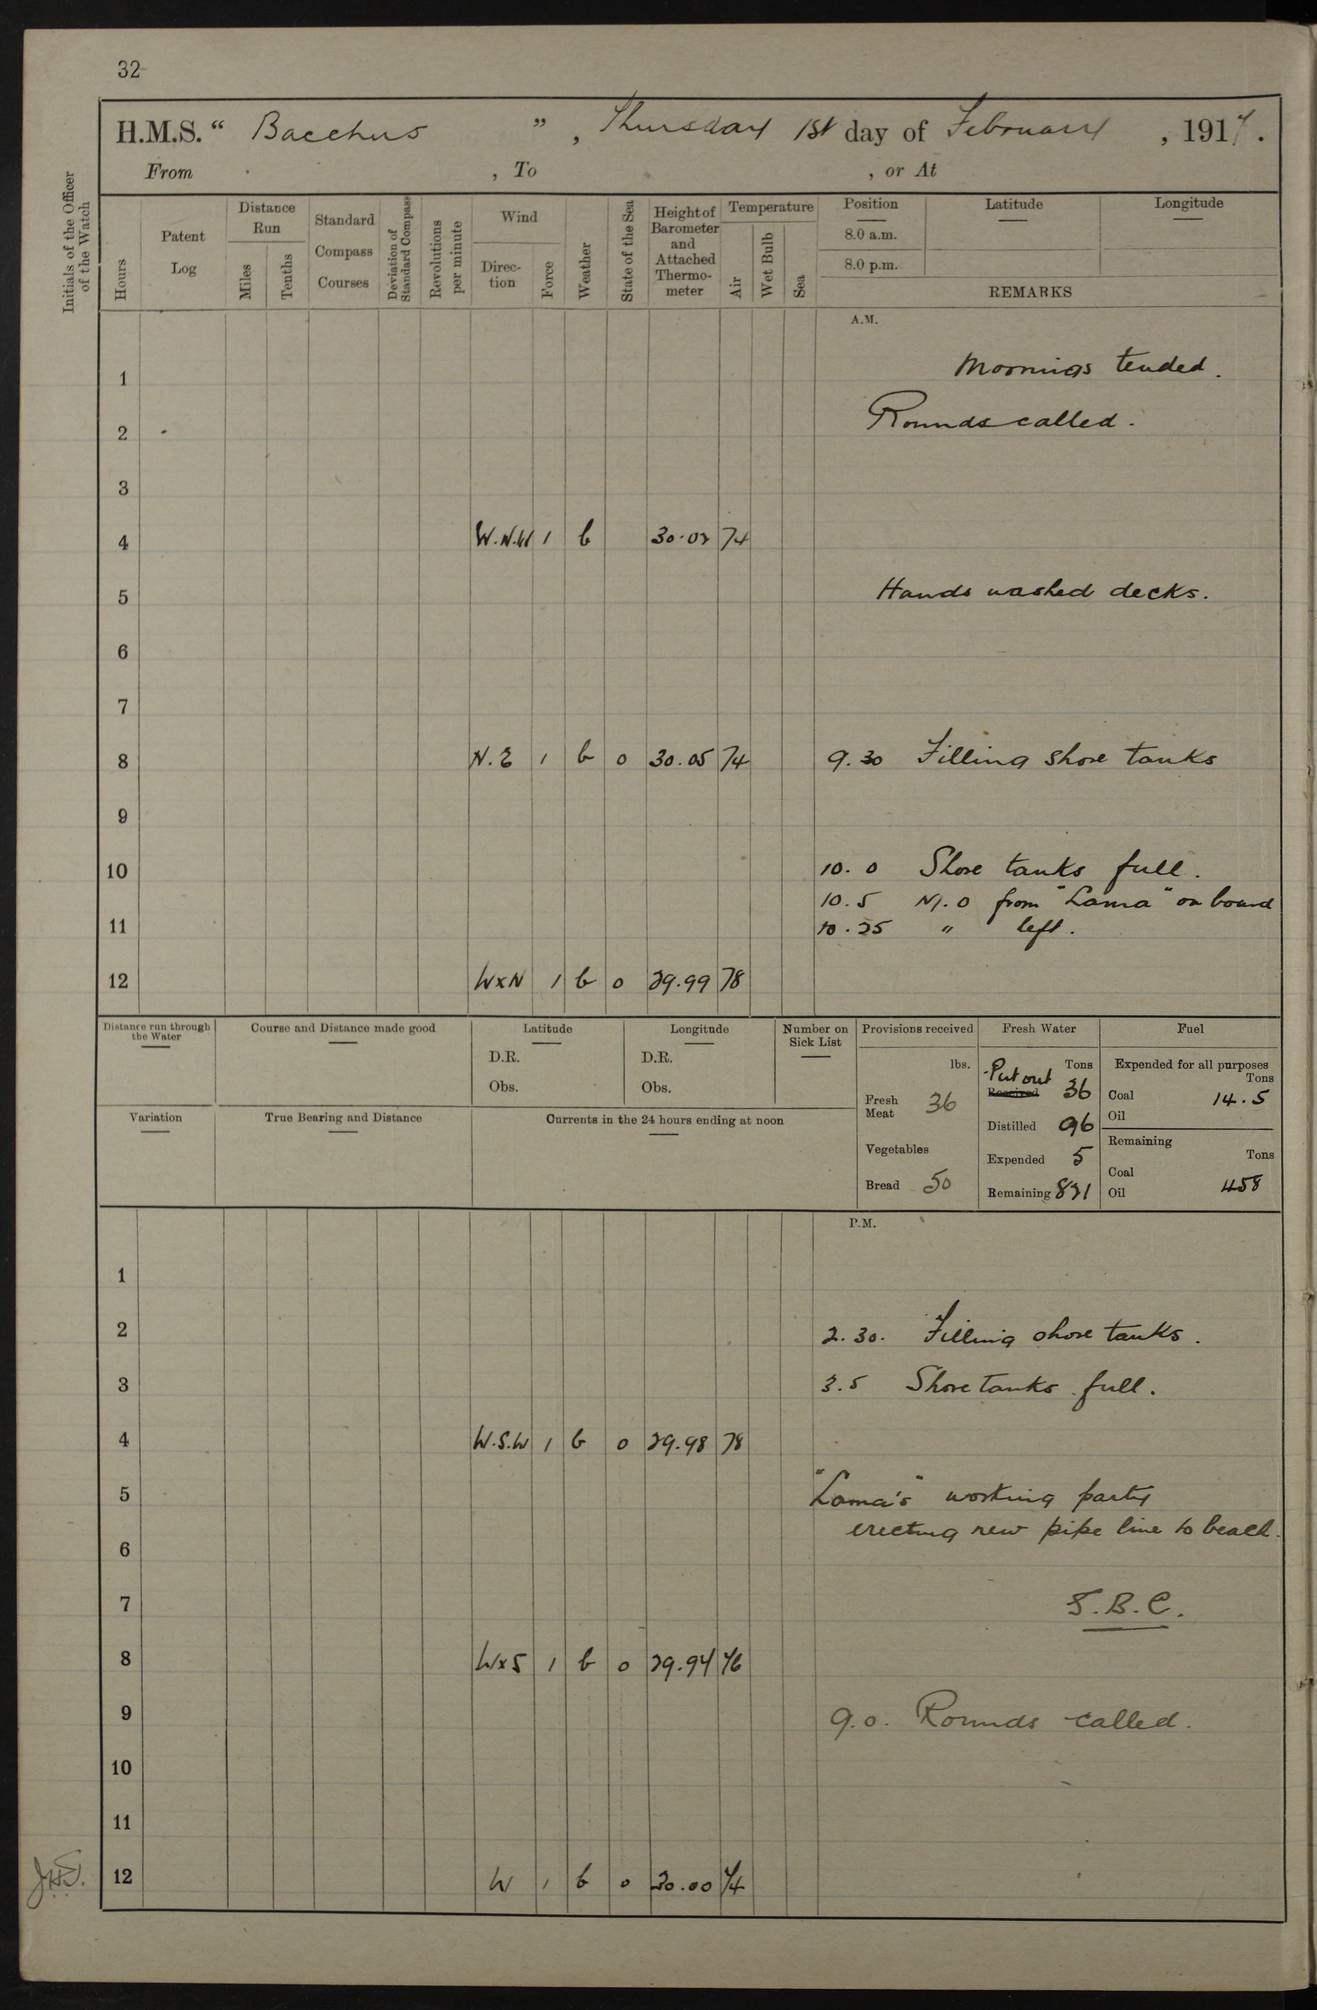 32
H.M.S. “ Bacchus ” , Thursday 1st day of February , 1917 .
From , To , or At
Initials of the Officer of the Watch
Hours
Patent Log
Distance Run
Miles
Tenths
Standard Compass Courses
Deviation of Standard Compass
Revolutions per minute
Wind
Direction
Force
Weather
State of the Sea
Height of Barometer and Attached Thermometer
Temperature
Air
Wet Bulb
Sea
Position
8.0 a.m.
8.0 p.m.
Latitude
Longitude
REMARKS
A.M.
1 Moorings tended.
2 Rounds called.
3
4 W.N.W 1 b 30.02 74
5 Hands washed decks.
6
7
8 N.E 1 b 0 30.05 74 9.30 Filling shore tanks
9
10 10.0 Shore tanks full.
10.5 M.O from "Lama" on board
11 10.25 " left.
12 WxN 1 b 0 29.99 78
Distance run through the Water
Course and Distance made good
Latitude
D.R.
Obs.
Longitude
D.R.
Obs.
Number on Sick List
Provisions received
lbs.
Fresh Meat 36
Vegetables
Bread 50
Fresh Water
Tons
Put out Received 36
Distilled 96
Expended 5
Remaining 831
Fuel
Expended for all purposes
Tons
Coal 14.5
Oil
Remaining
Tons
Coal
Oil 458
Variation
True Bearing and Distance
Currents in the 24 hours ending at noon
P.M.
1
2 2.30. Filling shore tanks.
3 3.5 Shore tanks full.
4 W.S.W 1 b 0 29.98 78
5 "Lama's" working party
erecting new pipe line to beach.
6
7 S.B.C.
8 WxS 1 b 0 29.94 76
9 9.0. Rounds called.
10
11
12 W 1 b 0 30.00 74